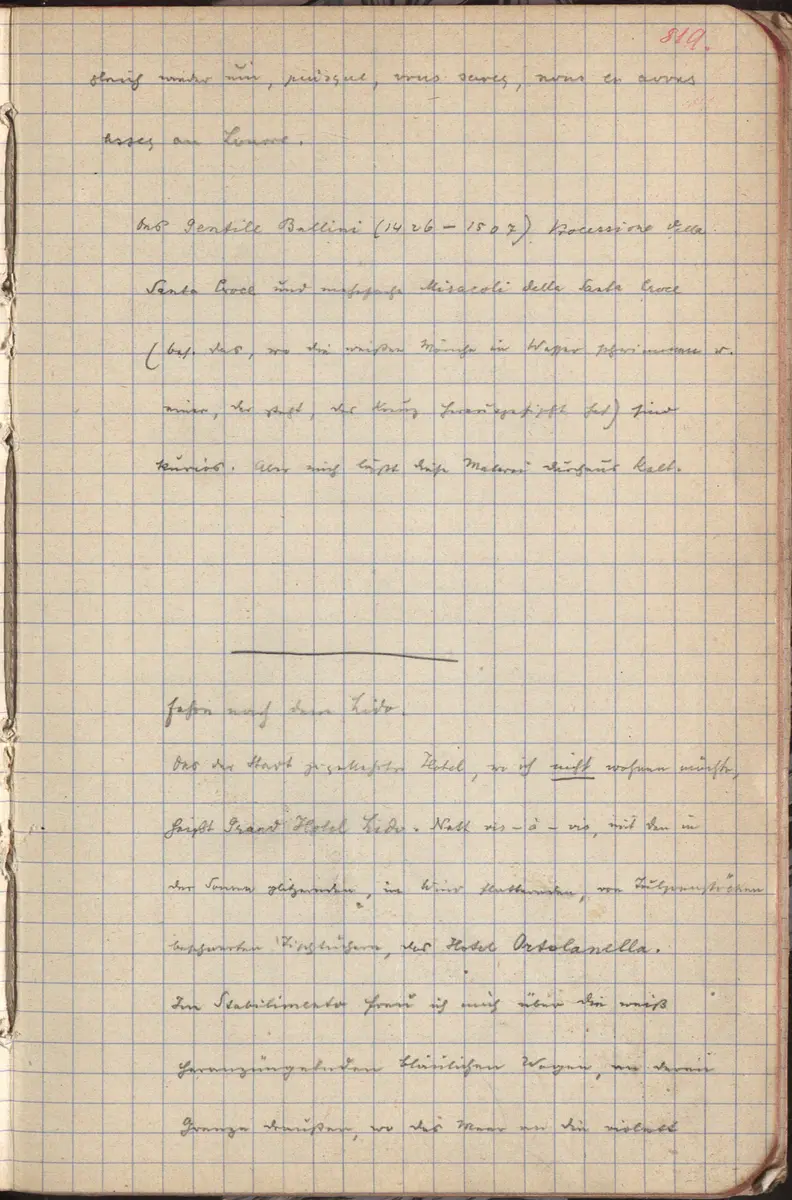 819.
gleich wieder um, puisque, vous savez, nous en avons
assez au Louvre.
Das Gentile Bellini (1426 – 1507) Processione della
Santa Croce und mehrfache Miracoli della Santa Croce
(bes. das, wo die weißen Mönche im Wasser schwimmen u.
einer, der das Kreuz herausgefischt hat) sind
kurios. Aber mich läßt diese Malerei durchaus kalt.
Fahrt nach dem Lido.
Das der Stadt zugekehrte Hotel, wo ich nicht wohnen möchte,
heißt Grand Hotel Lido. Nett vis-à-vis, mit den in
der Sonne glitzernden, im Wind flatternden, von Tulpenstöcken
beschwerten Tischtüchern, das Hotel Ortolanella.
Im Stabilimento freu ich mich über die weiß
heranzüngelnden bläulichen Wogen, an deren
Grenze draußen, wo das Meer an die violett